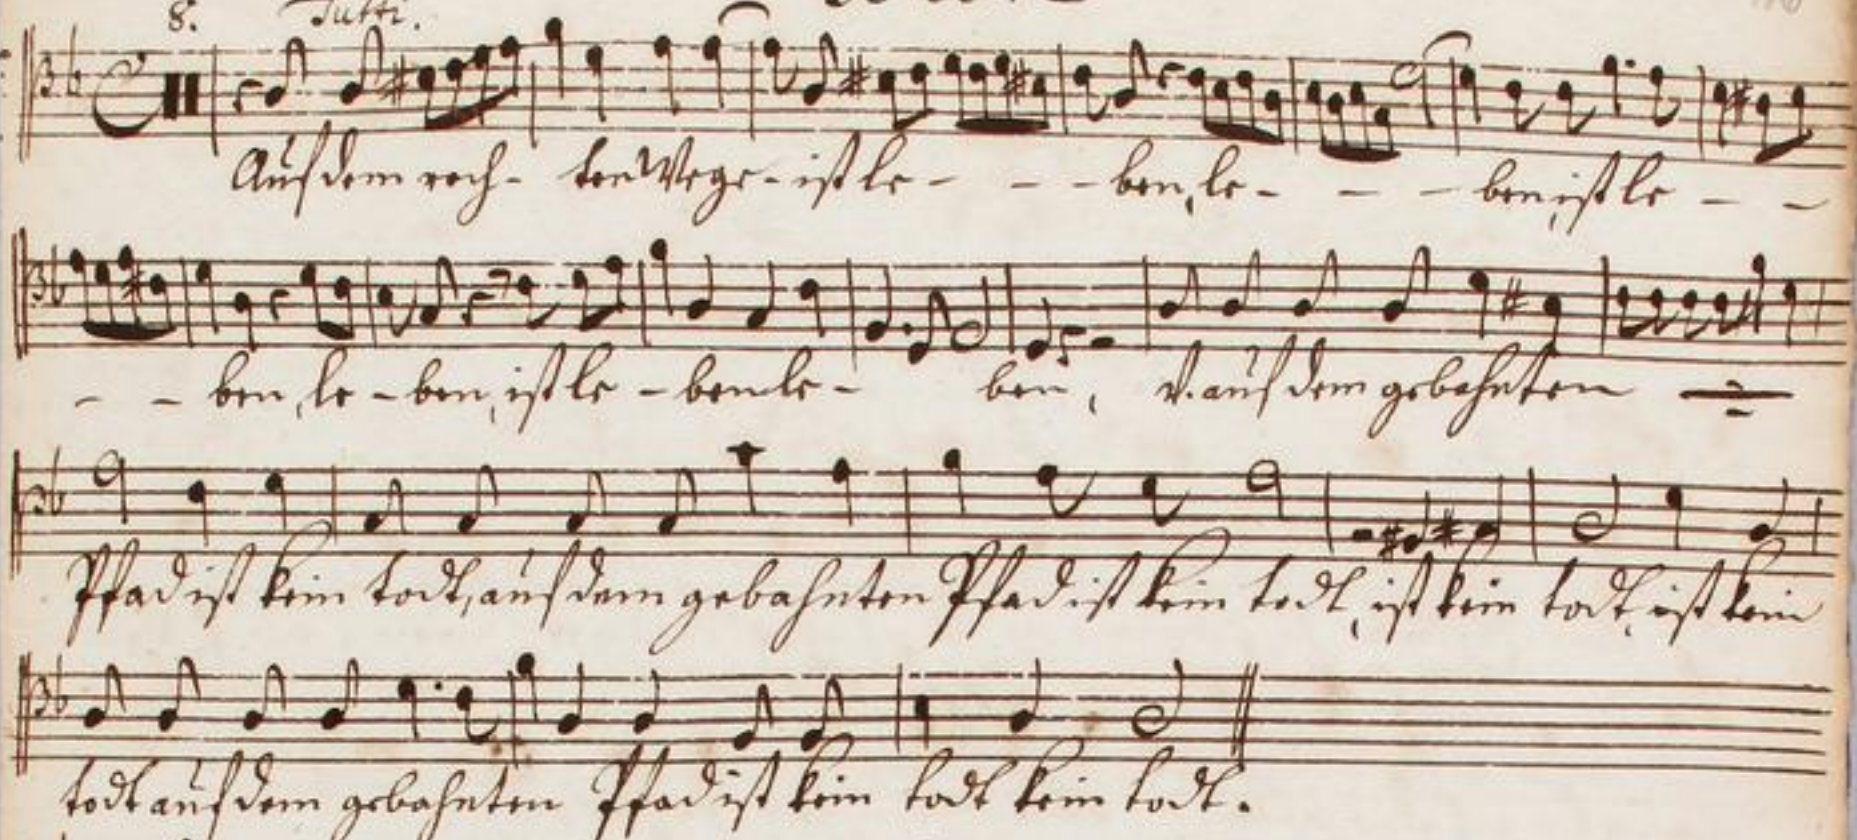 8. Tutti.
Auf dem rech- ten Wege - ist le - - - ben, le - - - ben, ist le - -
- - ben, le - ben, ist le - ben le - ben, V. auf dem gebahnten
Pfad ist kein todt, auf dem gebahnten Pfad ist kein todt, ist kein todt, ist kein
todt auf dem gebahnten Pfad ist kein todt kein todt.